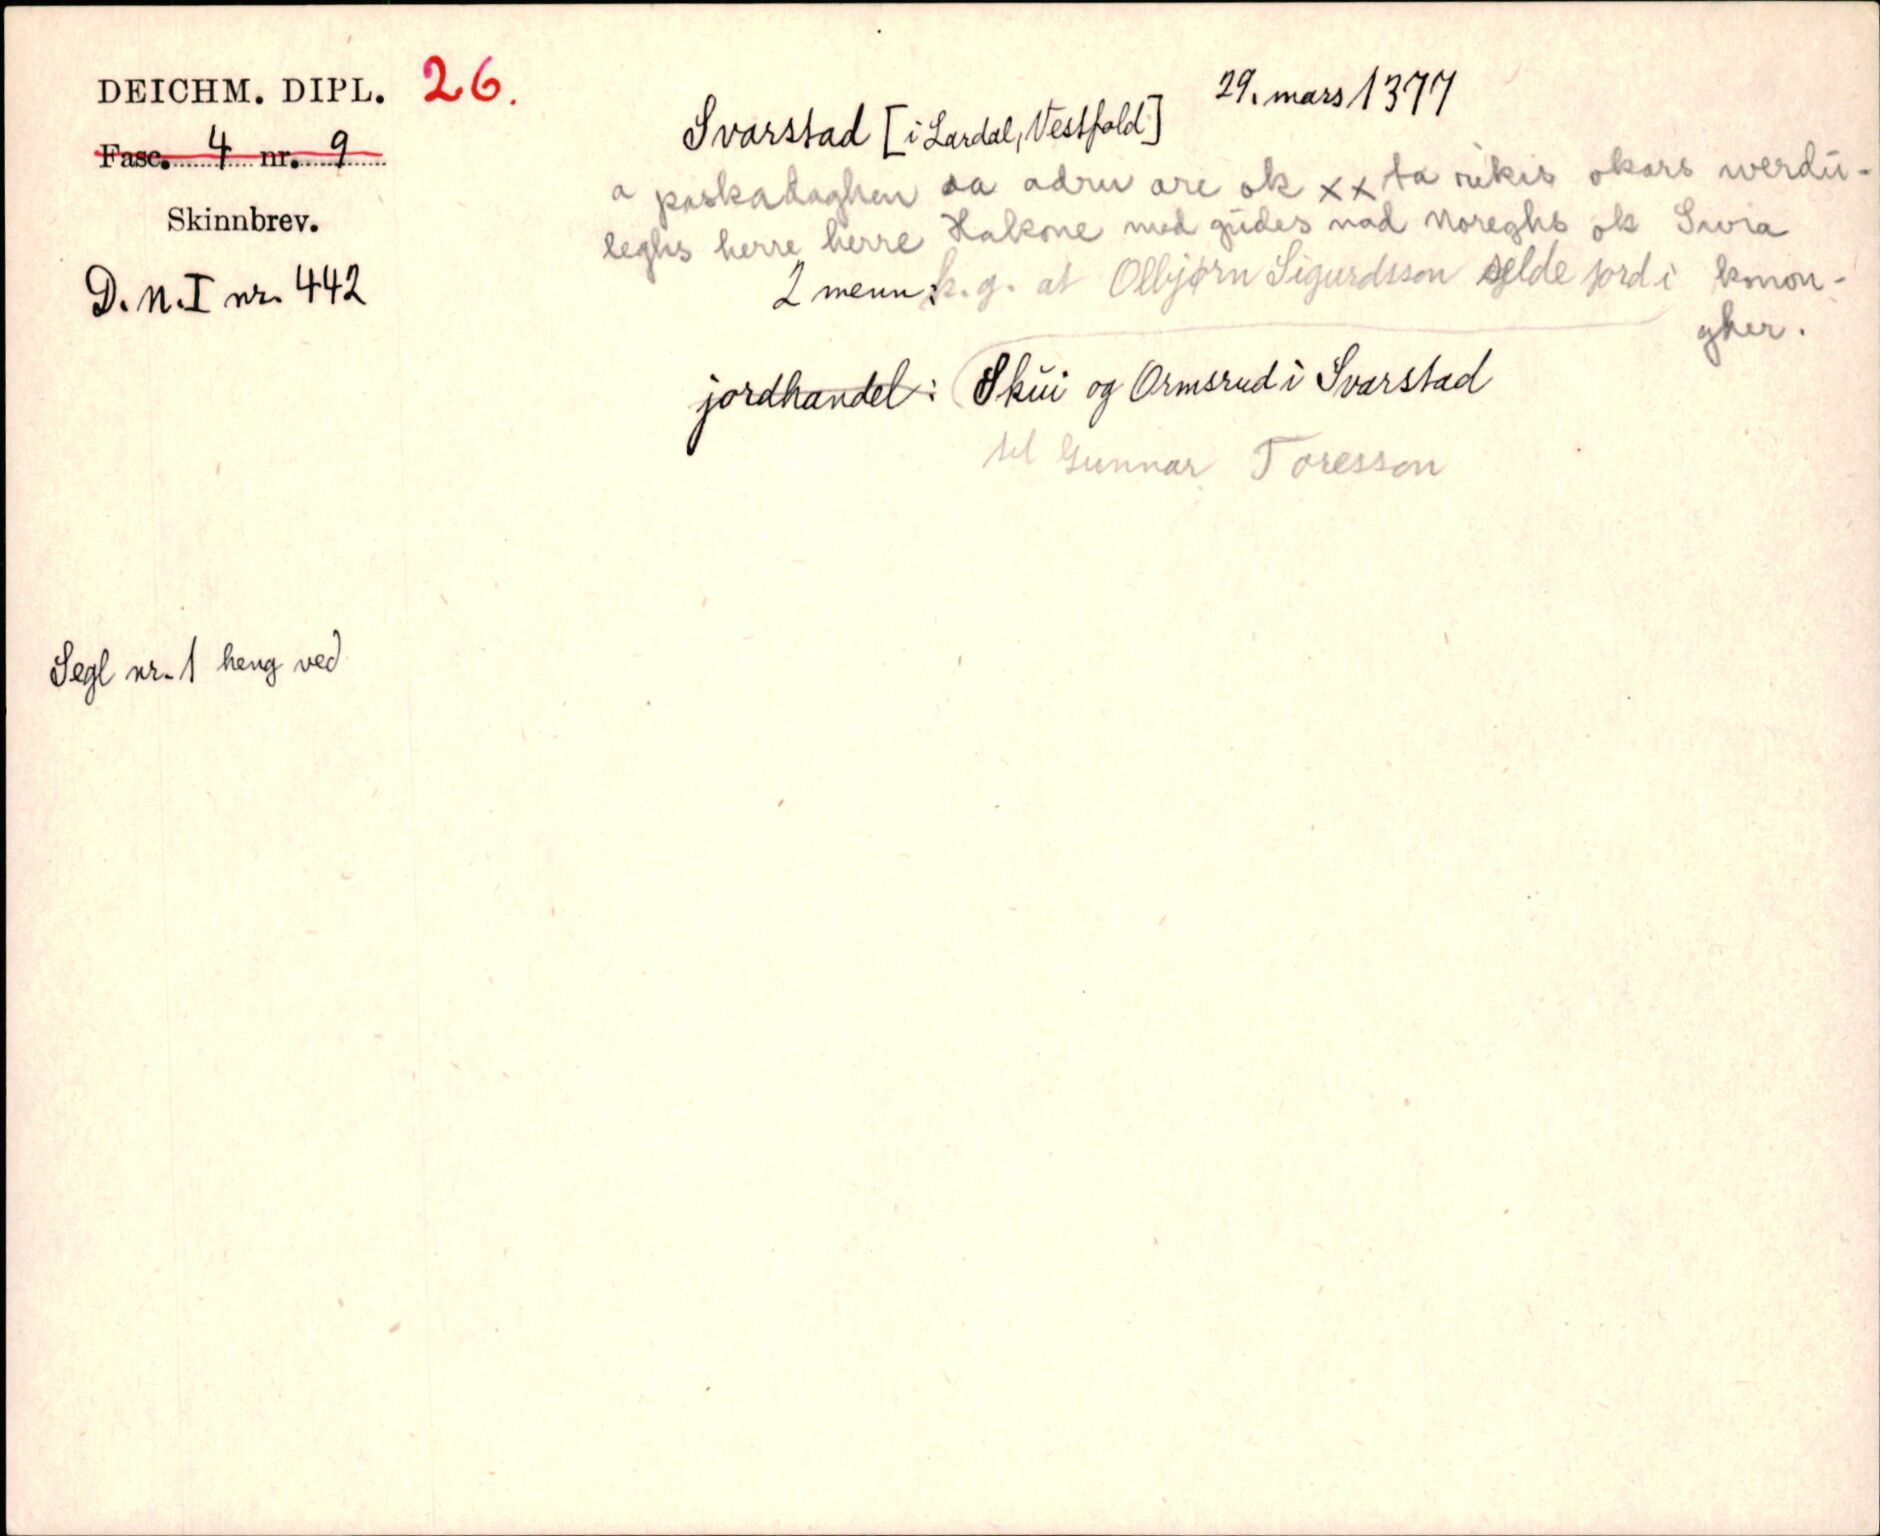 DEICHM. DIPL. 26.
Fasc. 4 nr. 9
Skinnbrev.
D.N.I nr. 442
Segl nr. 1 heng ved
29. mars 1377
Svarstad [i Lardal, Vestfold]
a paskadaghen a adru are ok xx ta rikis okars werdu-
leghs herre herre Hakone med gudes nad Noreghs ok Swia
2 menn: k.g. at Olbjørn Sigurdsson selde jord i konon-
gher.
jordhandel: Skui og Ormsrud i Svarstad
til Gunnar Toresson